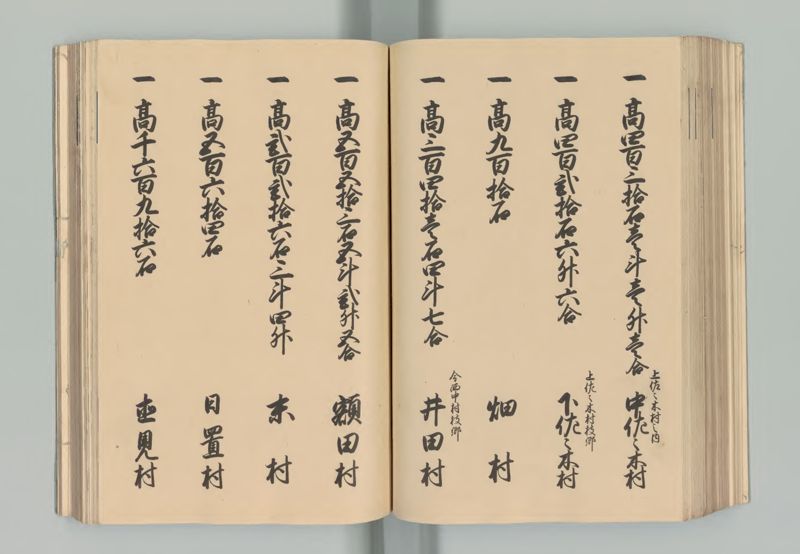 一 高四百三拾石壱斗壱升壱合 上佐々木村之内 中佐々木村
一 高四百弐拾石六升六合 上佐々木村枝郷 下佐々木村
一 高九百拾石 畑村
一 高三百四拾壱石四斗七合 今西中村枝郷 井田村
一 高五百五拾三石五斗弐升五合 額田村
一 高弐百弐拾六石三斗四升 末村
一 高五百六拾四石 日置村
一 高千六百九拾六石 直見村